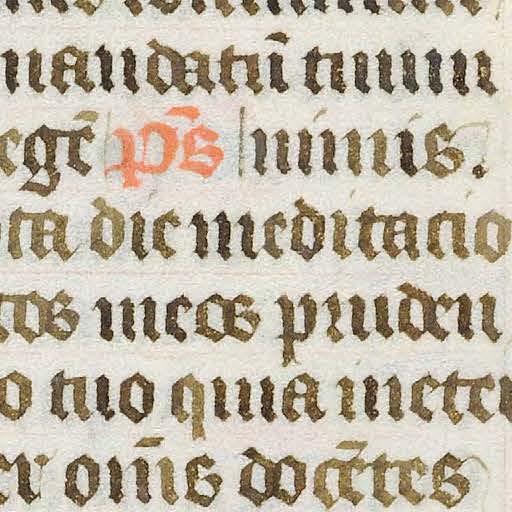 mandatū tuum
egē p̄s nimis.
ota die meditatio
cos meos pruden
o tuo quia ineter
er om̄s docētes